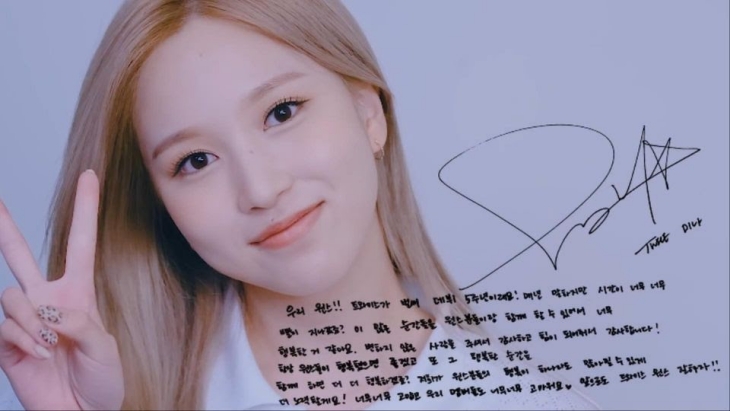 TWICE 미나
우리 원스!! 트와이스가 벌써 데뷔 5주년이래요! 매년 말하지만 시간이 너무 너무
빨리 지나가죠? 이 모든 순간들을 원스분들이랑 함께 할 수 있어서 너무
행복한 거 같아요. 변하지 않는 사랑을 주셔서 감사하고 힘이 되어줘서 감사합니다!
항상 원스들이 행복했으면 좋겠고 또 그 행복한 순간을
함께 하면 더 더 행복하겠죠! 저희가 원스분들의 행복이 하나라도 많아질 수 있게
더 노력할게요! 너무너무 고맙고 우리 멤버들도 너무너무 고마워요♡ 앞으로도 트와이스 원스 같이가자!!